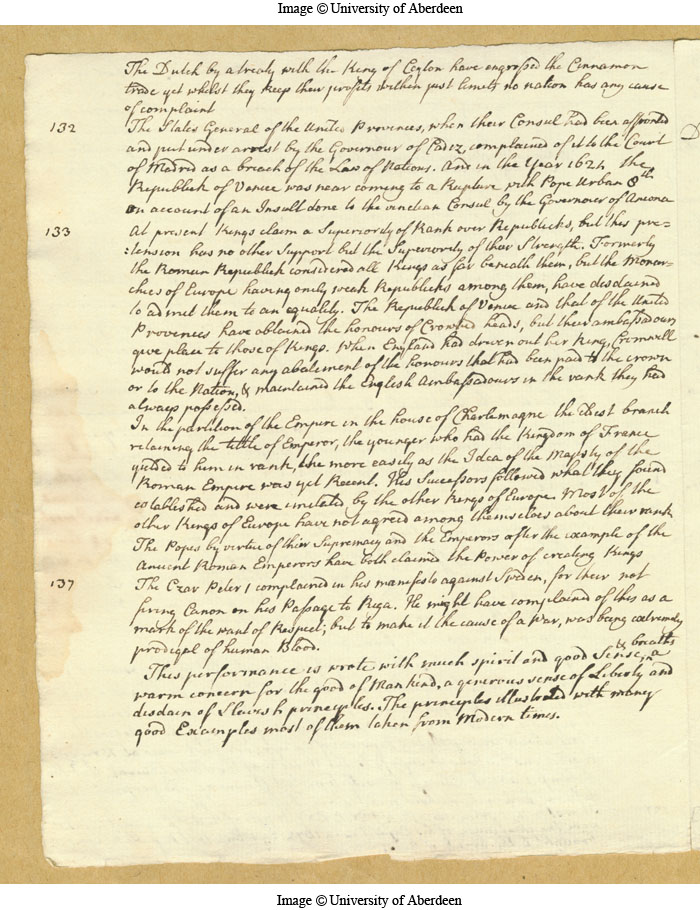 Image © University of Aberdeen
The Dutch by a treaty with the King of Ceylon have engrossed the Cinnamon
trade yet whilst they keep their profits within just limits no nation has any cause
of complaint
132 The States General of the United Provinces, when their Consul had been affronted
and put under arrest by the Governour of Cadiz, complained of it to the Court
of Madrid as a breach of the Law of Nations. And in the Year 1624 the
Republick of Venice was near coming to a Rupture with Pope Urban 8th
on account of an Insult done to the venetian Consul by the Governour of Ancona
133 At present Kings claim a Superiority of Rank over Republicks, but this pre=
:tension has no other Support but the Superiority of their Strength. Formerly
the Roman Republick considered all Kings as far beneath them, but the Monar=
chies of Europe having only weak Republicks among them, have disdained
to admit them to an equality. The Republick of Venice and that of the United
Provinces have obtained the honours of Crowned heads, but their ambassadours
give place to those of Kings. When England had driven out her King, Cromwell
would not suffer any abatement of the honours that had been paid to the crown
or to the Nation, & maintained the English Ambassadours in the rank they had
always possessed.
In the partition of the Empire in the house of Charlemagne the eldest branch
retaining the tittle of Emperor, the younger who had the Kingdom of France
yielded to him in rank, the more easily as the Idea of the Majesty of the
Roman Empire was yet Recent. His Successors followed what they found
established and were imitated by the other Kings of Europe. Most of the
other Kings of Europe have not agreed among themselves about their rank
The Popes by virtue of their Supremacy and the Emperors after the example of the
Ancient Roman Emperors have both claimed the Power of creating Kings
137 The Czar Peter 1 complained in his manifesto against Sweden, for their not
firing Canon on his Passage to Riga. He might have complained of this as a
mark of the want of Respect; but to make it the cause of a War, was being extremely
prodigal of human Blood.
This performance is wrote with much spirit and good Sense, & breaths a
warm concern for the good of Mankind, a generous sense of Liberty and
disdain of Slavish principles. The principles illustrated with many
good Examples most of them taken from Modern times.
Image © University of Aberdeen